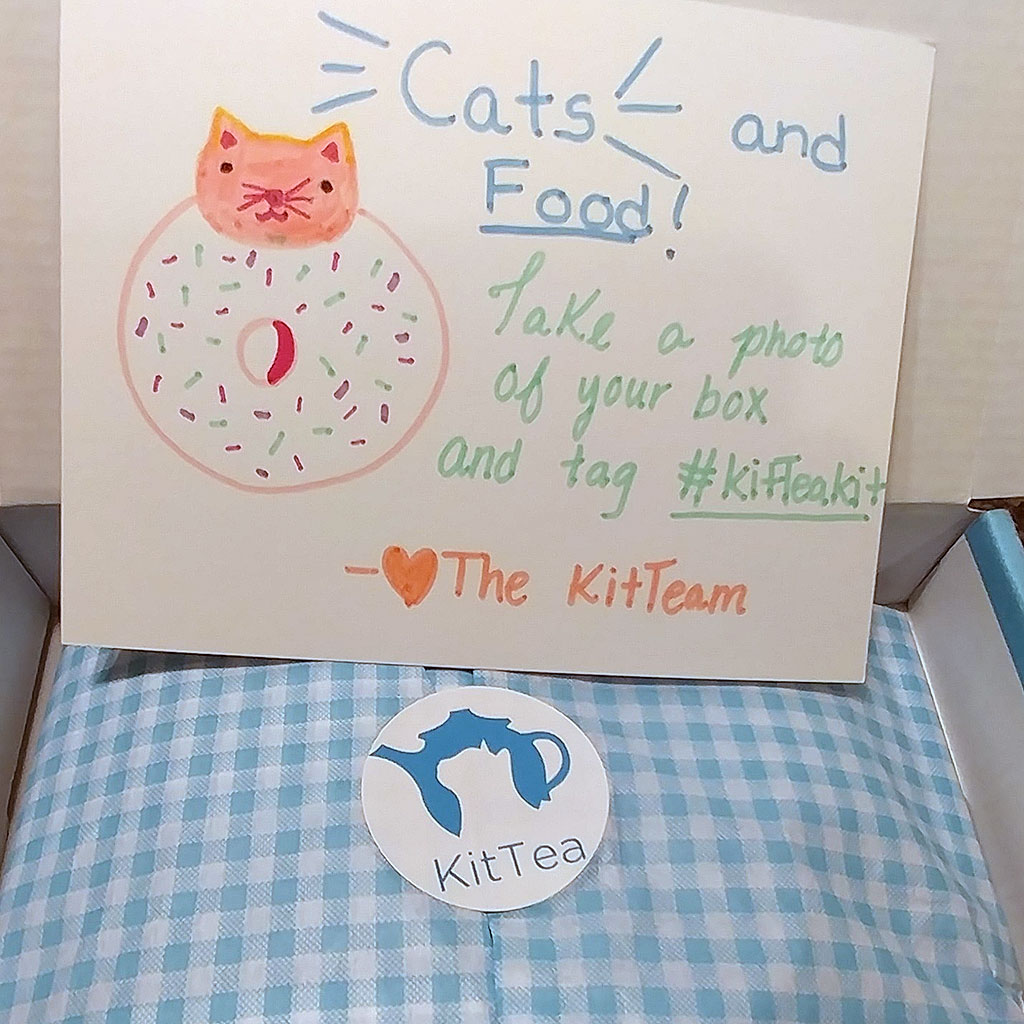 Cats and
Food!
Take a photo
of your box
and tag #kitTeakit
-♥The KitTeam
KitTea